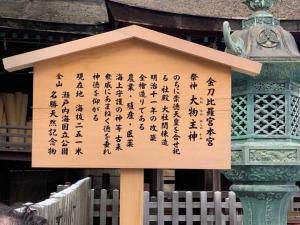 金刀比羅宮本宮
祭神 大物主神
のちに崇徳天皇を合せ祀
る 社殿 大社関棟造
明治十一年の改築
全檜造りである
農業・殖産・医薬
海上守護の神 等古来
衆庶にあまねく徳を垂れ
神徳を仰がる
現在地 海抜二五一米
瀬戸内海国立公園
全山 名勝天然記念物